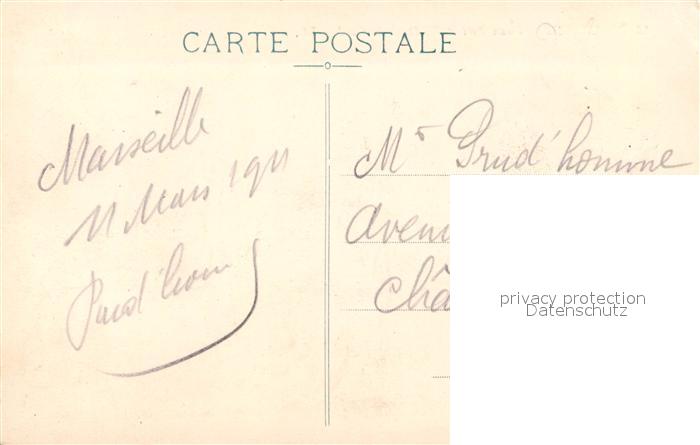 CARTE POSTALE
Marseille
11 Mars 1911
Prud'hom
Mr Prud'homme
Aven
Châ
privacy protection
Datenschutz